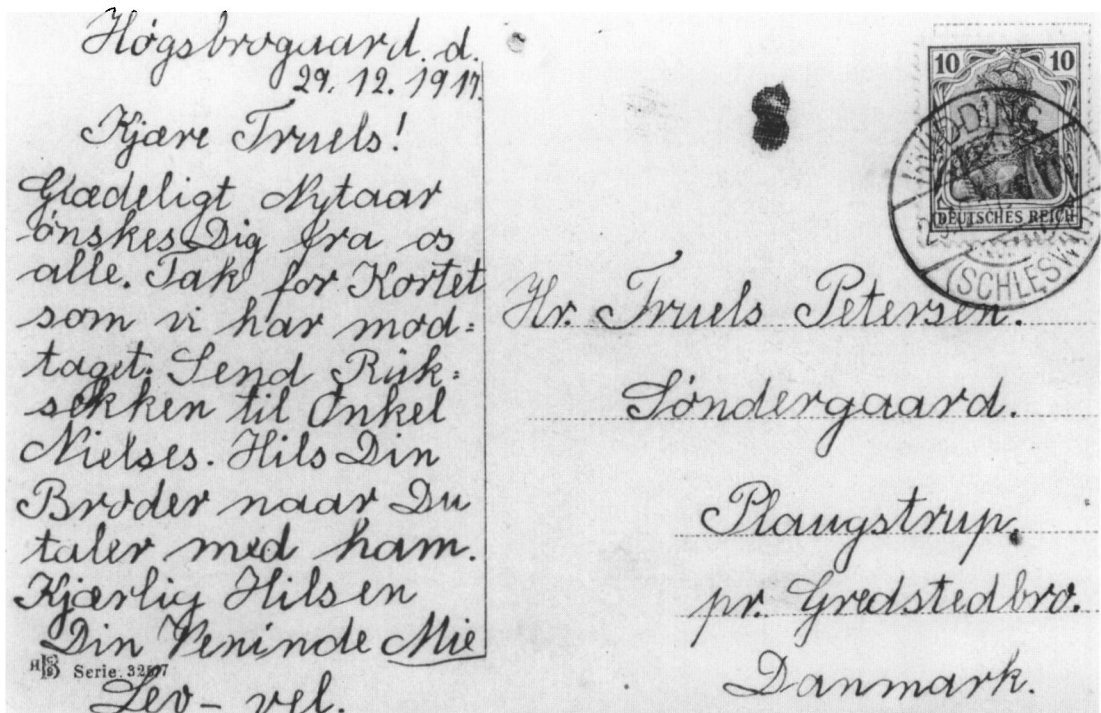 Høgsbrogaard. d.
29. 12. 1917.
Kjære Truels!
Glædeligt Nytaar
ønskes Dig fra os
alle. Tak for Kortet
som vi har mod=
taget. Send Rük=
sekken til Onkel
Nielses. Hils Din
Broder naar Du
taler med ham.
Kjærlig Hilsen
Din Veninde Mie
Serie. 32
Lev - vel.
10 10
DEUTSCHES REICH
HVIDDING
(SCHLESW
Hr. Truels Petersen.
Søndergaard.
Plaugstrup.
pr. Gredstedbro.
Danmark.